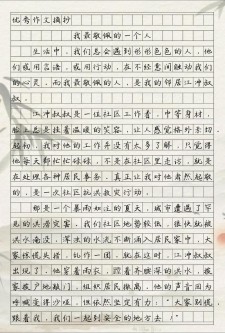 优秀作文摘抄
我最敬佩的一个人
生活中，我们总会遇到形形色色的人，他
们或用言语，或用行动，在不经意间触动我们
的心灵，而我最敬佩的人，是我的邻居江冲叔
叔。
江冲叔叔是一位社区工作者，中等身材，
脸上总是挂着温暖的笑容，让人感觉格外亲切。
起初，我对他的工作并没有太多了解，只觉得
他每天都忙忙碌碌，不是在社区里走访，就是
在处理各种居民事务。真正让我对他肃然起敬
的，是一次社区抗洪救灾行动。
那是一个暴雨如注的夏天，城市遭遇了罕
见的洪涝灾害。我们社区地势较低，很快就被
洪水淹没，浑浊的水流不断涌入居民家中，大
家惊慌失措，乱作一团。就在这时，江冲叔叔
出现了。他穿着雨衣，蹚着齐腰深的洪水，挨
家挨户地敲门，组织居民撤离。他的声音因为
呼喊变得沙哑，但依然坚定有力：“大家别慌，
跟着我，我们一起到安全的地方去！”